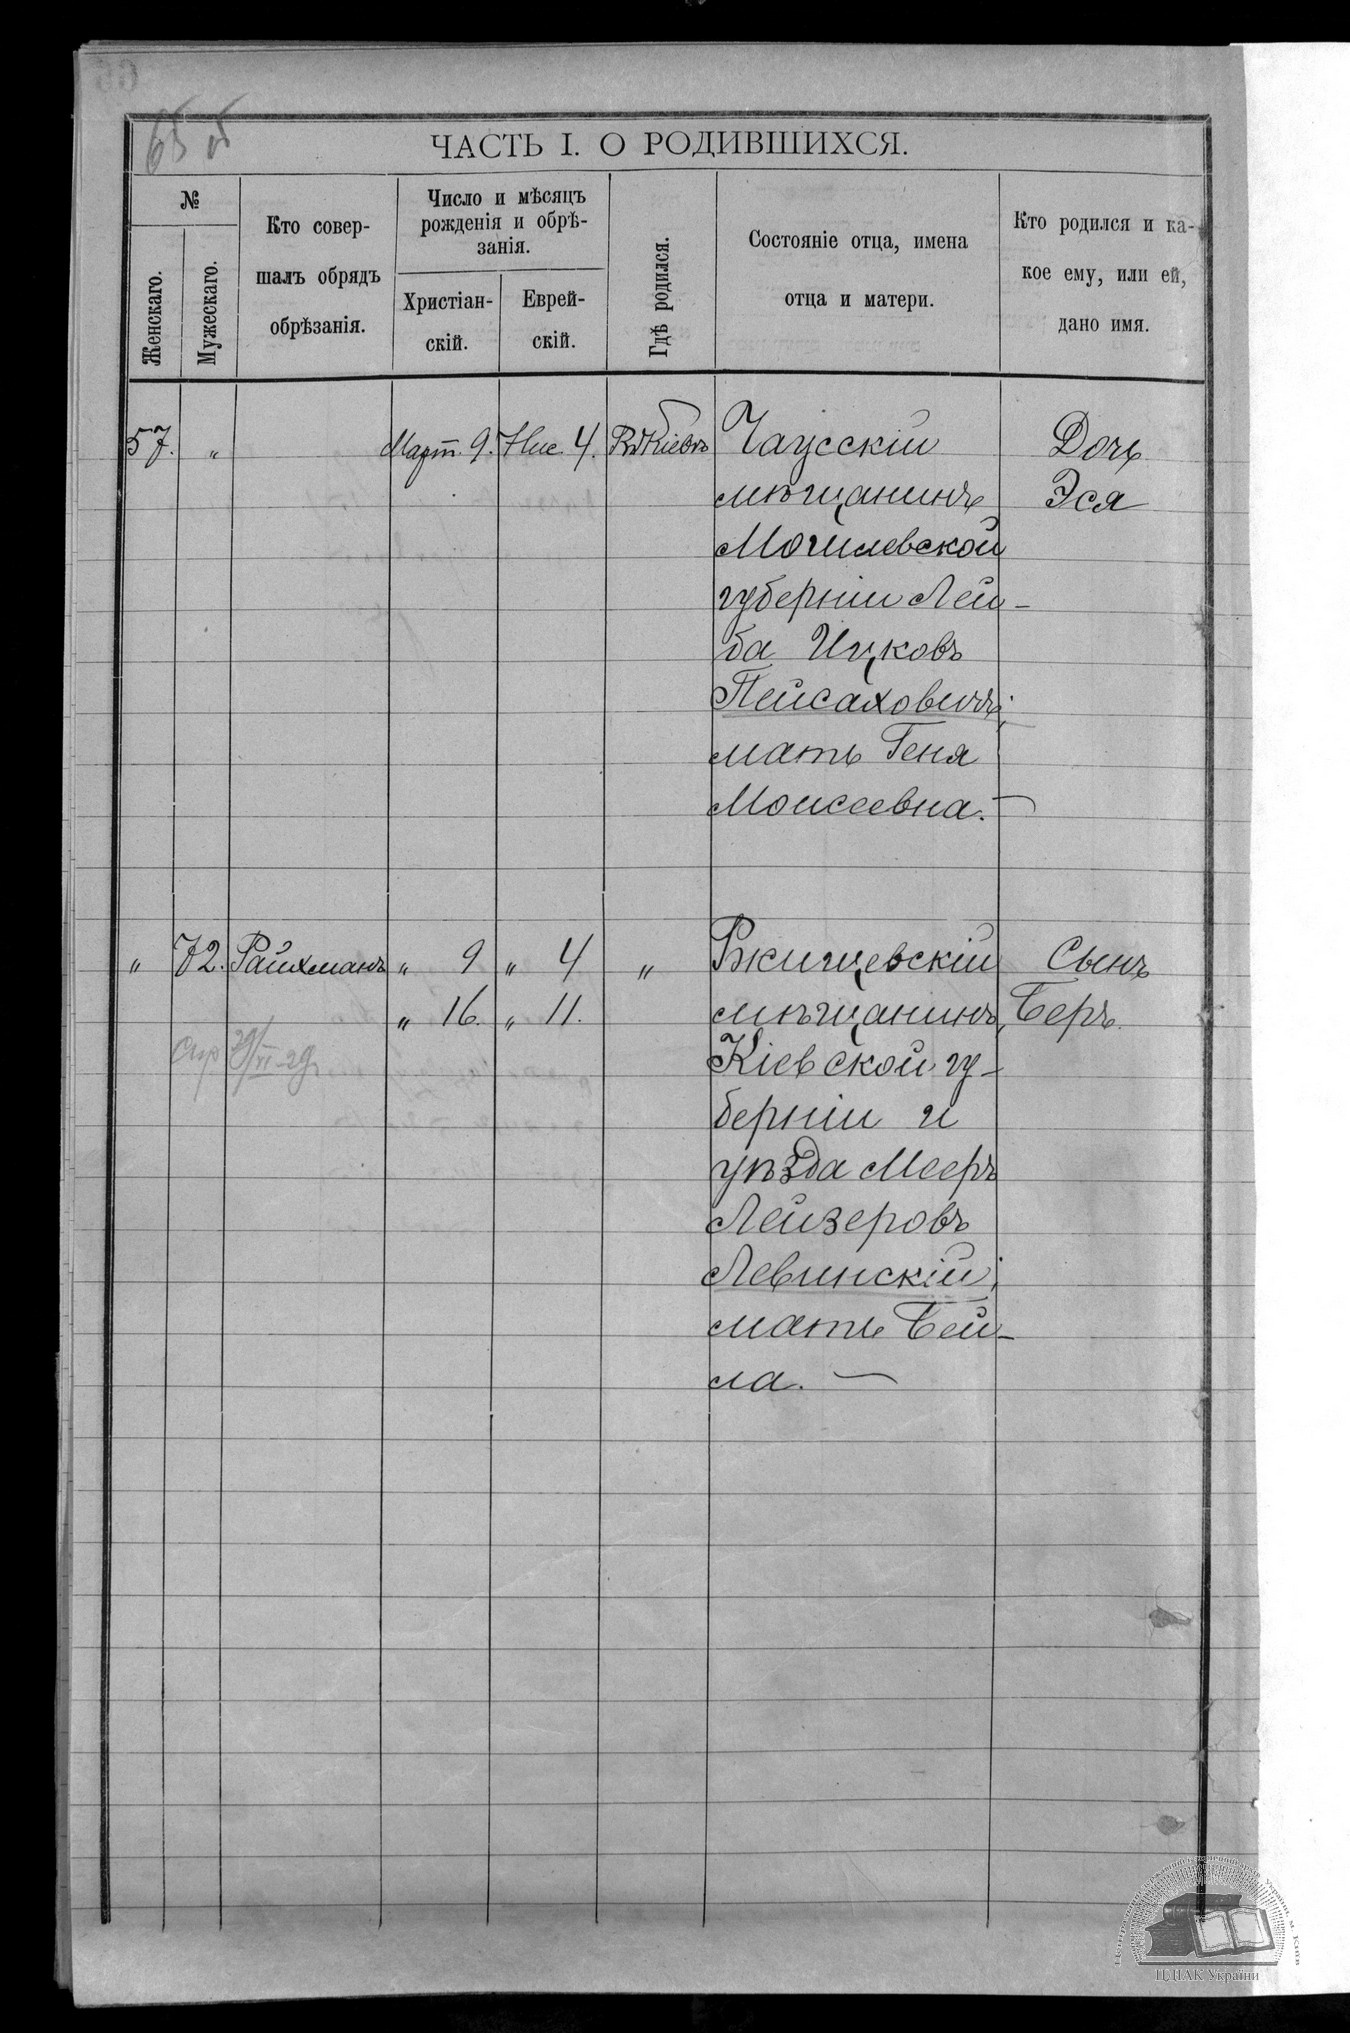 65 об
ЧАСТЬ I. О РОДИВШИХСЯ.
№
Женскаго.
Мужескаго.
Кто совер-
шалъ обрядъ
обрѣзанія.
Число и мѣсяцъ
рожденія и обрѣ-
занія.
Христіан-
скій.
Еврей-
скій.
Гдѣ родился.
Состояніе отца, имена
отца и матери.
Кто родился и ка-
кое ему, или ей,
дано имя.
57. " Март. 9. Нис. 4. Въ Кіевѣ Чаусскій Дочь
мѣщанинъ Эся
Могилевской
губерніи Лей-
ба Ицковъ
Пейсаховичъ;
мать Геня
Моисеевна. —
" 72. Райхманъ " 9 " 4 " Ржищевскій Сынъ
" 16. " 11. мѣщанинъ, Беръ.
Кіевской гу-
берніи и
уѣзда Мееръ
Лейзеровъ
Левинскій;
мать Бей-
ла. —
29/VI-29
ЦДІАК України